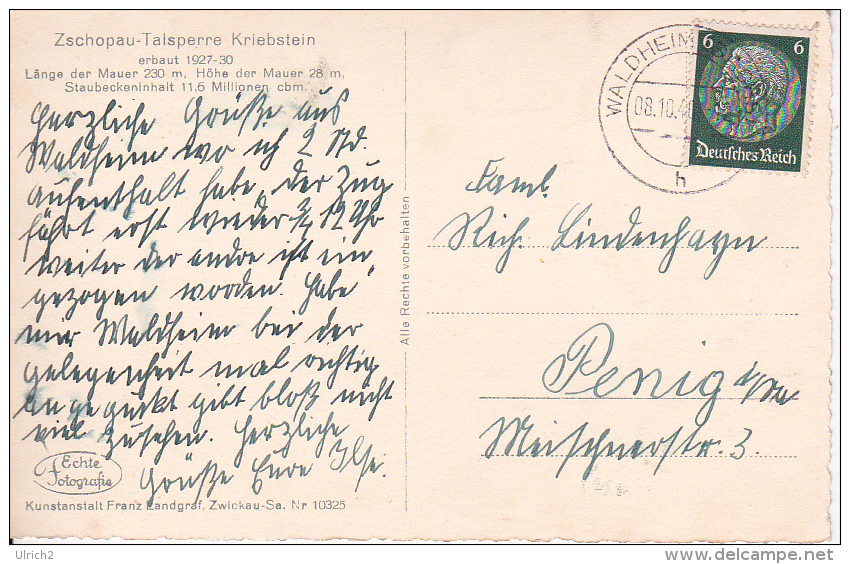 Zschopau-Talsperre Kriebstein
erbaut 1927-30
Länge der Mauer 230 m, Höhe der Mauer 28 m,
Staubeckeninhalt 11,6 Millionen cbm.
Herzliche Grüße aus
Waldheim wo ich 2 Std.
aufenthalt habe, der Zug
fährt erst wieder 3/4 12 Uhr
weiter der andre ist ein
gezogen worden. Habe
mir Waldheim bei der
gelegenheit mal richtig
an ge guckt gibt bloß nicht
viel zu sehen. Herzliche
Grüße Eure Ilse.
Echte
Fotografie
Kunstanstalt Franz Landgraf, Zwickau-Sa. Nr 10325
Alle Rechte vorbehalten
WALDHEIM
08.10.4
h
6 6
Deutsches Reich
Faml.
Rich. Lindenhayn
Penig i/Sa
Meischnerstr. 3.
Ulrich2
www.delcampe.net